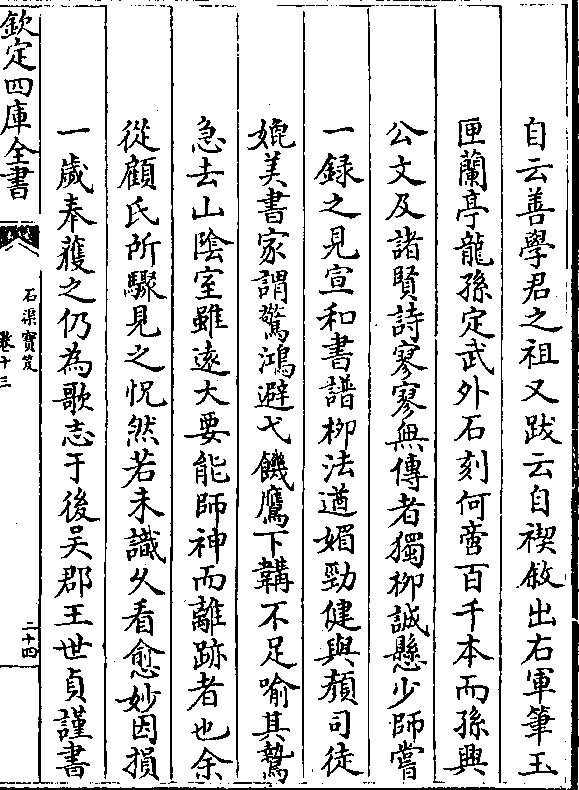 自云善學君之祖又跋云自禊敘出右軍筆玉
匣蘭亭龍孫定武外石刻何啻百千本而孫興
公文及諸賢詩寥寥無傳者獨柳誠懸少師嘗
一錄之見宣和書譜柳法遒媚勁健與顏司徒
媲美書家謂驚鴻避弋饑鷹下韝不足喻其鷙
急去山陰室雖遠大要能師神而離跡者也余
從顧氏所驟見之怳然若未識久看愈妙因損
一歲奉蒦之仍為歌志于後吳郡王世貞謹書
欽定四庫全書
石渠寶笈
卷十三
二十四